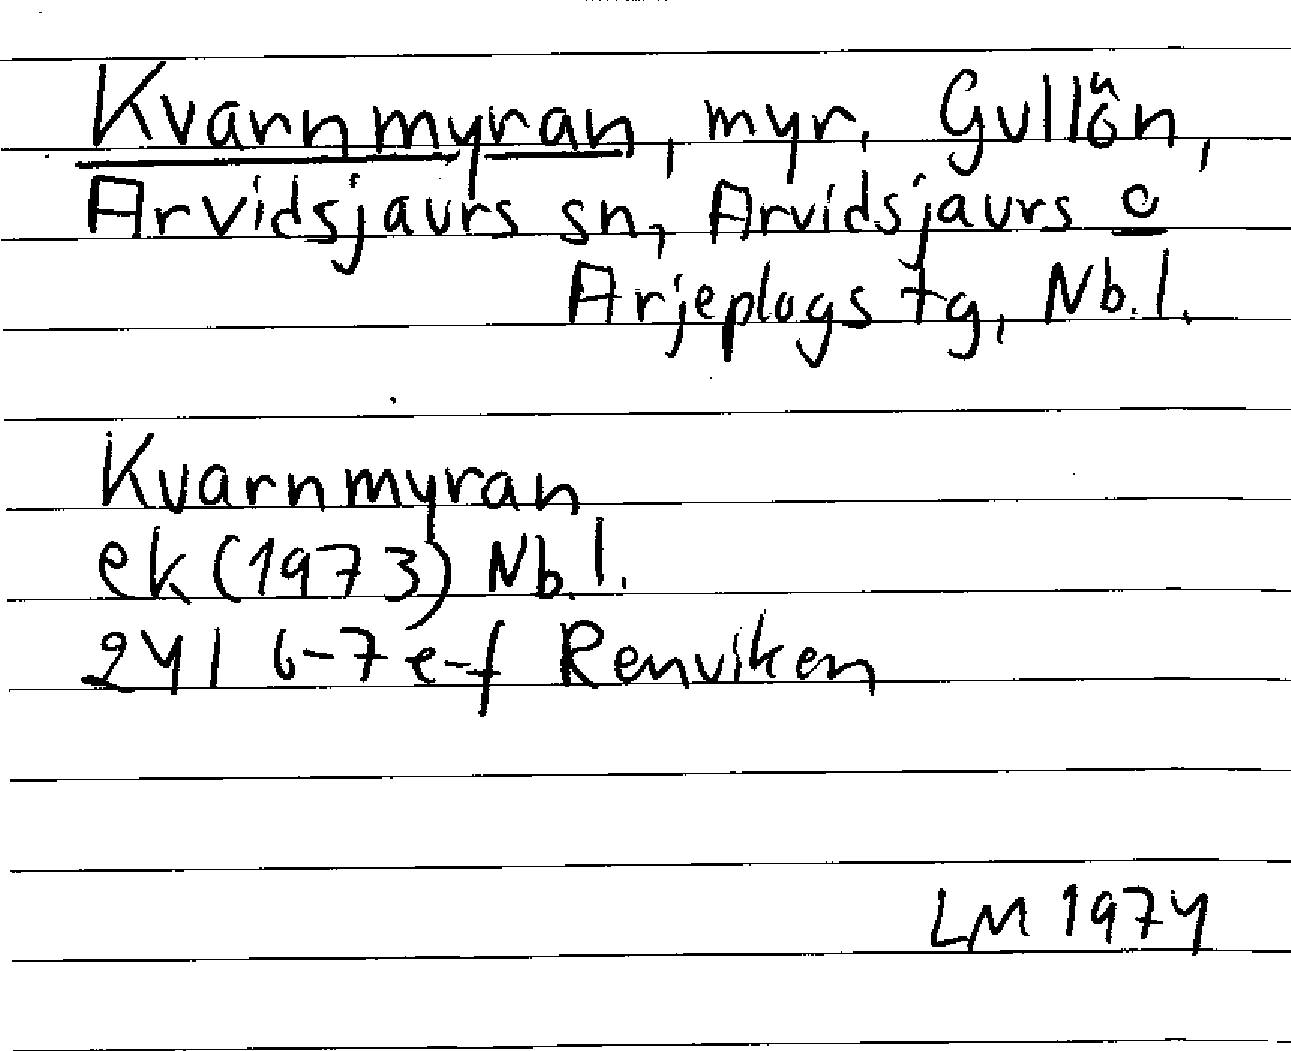 Kvarnmyran, myr. Gullön,
Arvidsjaurs sn, Arvidsjaurs o
Arjeplogs tg, Nb.l.
Kvarnmyran
ek (1973) Nb.l.
24I 6-7 e-f Renviken
LM 1974